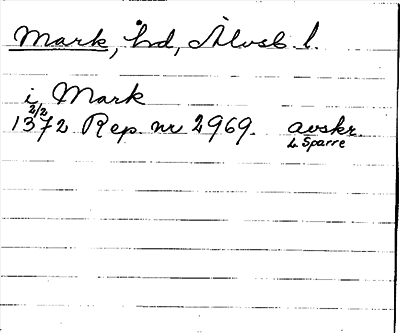 Mark, hd, Älvsb. l.
i Mark
2/2
1372 Rep. nr 2969. avskr.
L. Sparre